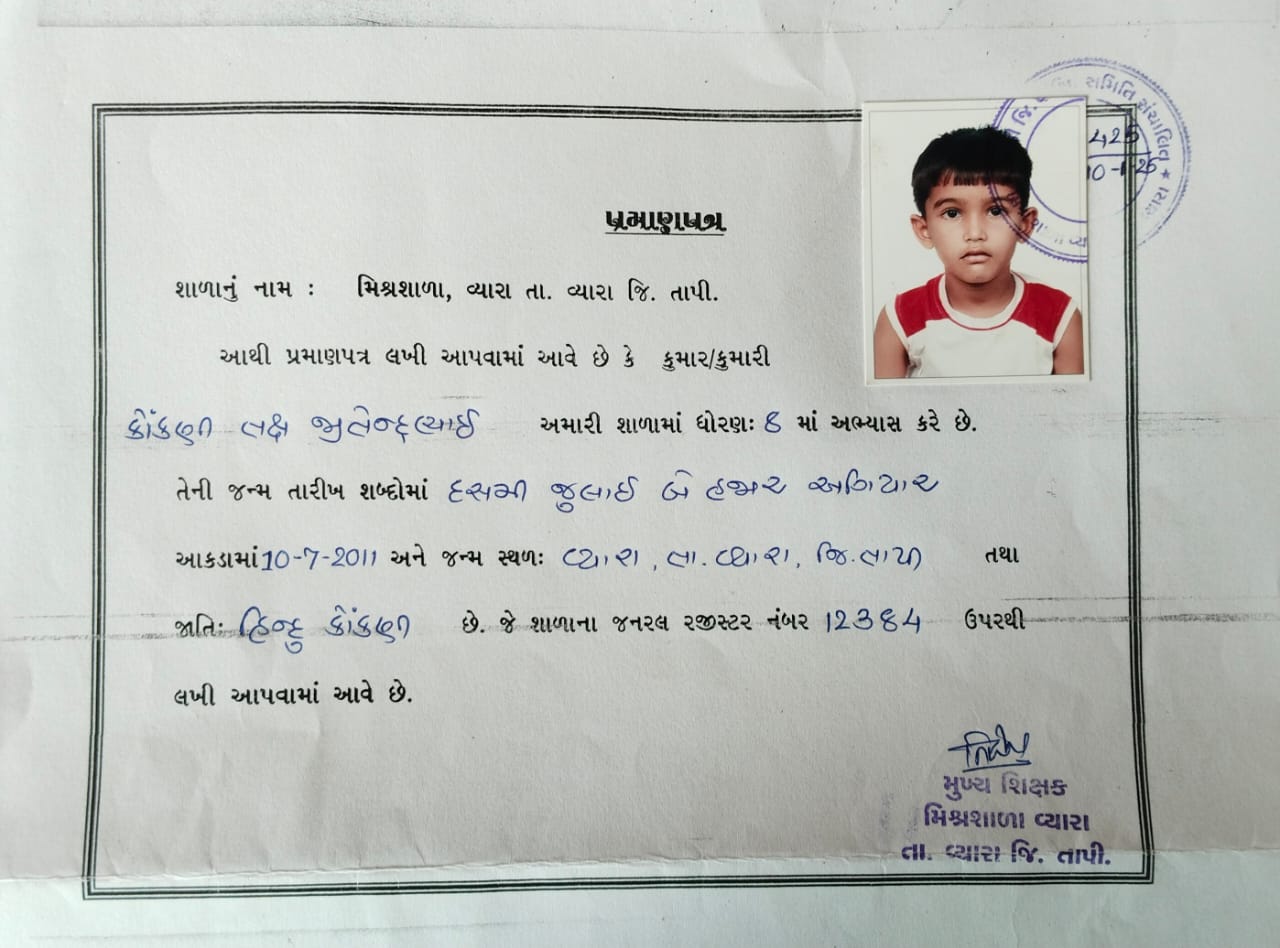 સમિતિ સંચાલિત
425
પ્રમાણપત્ર
શાળાનું નામ : મિશ્રશાળા, વ્યારા તા. વ્યારા જિ. તાપી.
આથી પ્રમાણપત્ર લખી આપવામાં આવે છે કે કુમાર/કુમારી
કોંકણી લક્ષ જીતેન્દ્રભાઈ અમારી શાળામાં ધોરણઃ 8 માં અભ્યાસ કરે છે.
તેની જન્મ તારીખ શબ્દોમાં દસમી જુલાઈ બે હજાર અગિયાર
આકડામાં 10-7-2011 અને જન્મ સ્થળઃ વ્યારા, તા. વ્યારા, જિ. તાપી તથા
જાતિઃ હિન્દુ કોંકણી છે. જે શાળાના જનરલ રજીસ્ટર નંબર 12384 ઉપરથી
લખી આપવામાં આવે છે.
મુખ્ય શિક્ષક
મિશ્રશાળા વ્યારા
તા. વ્યારા જિ. તાપી.